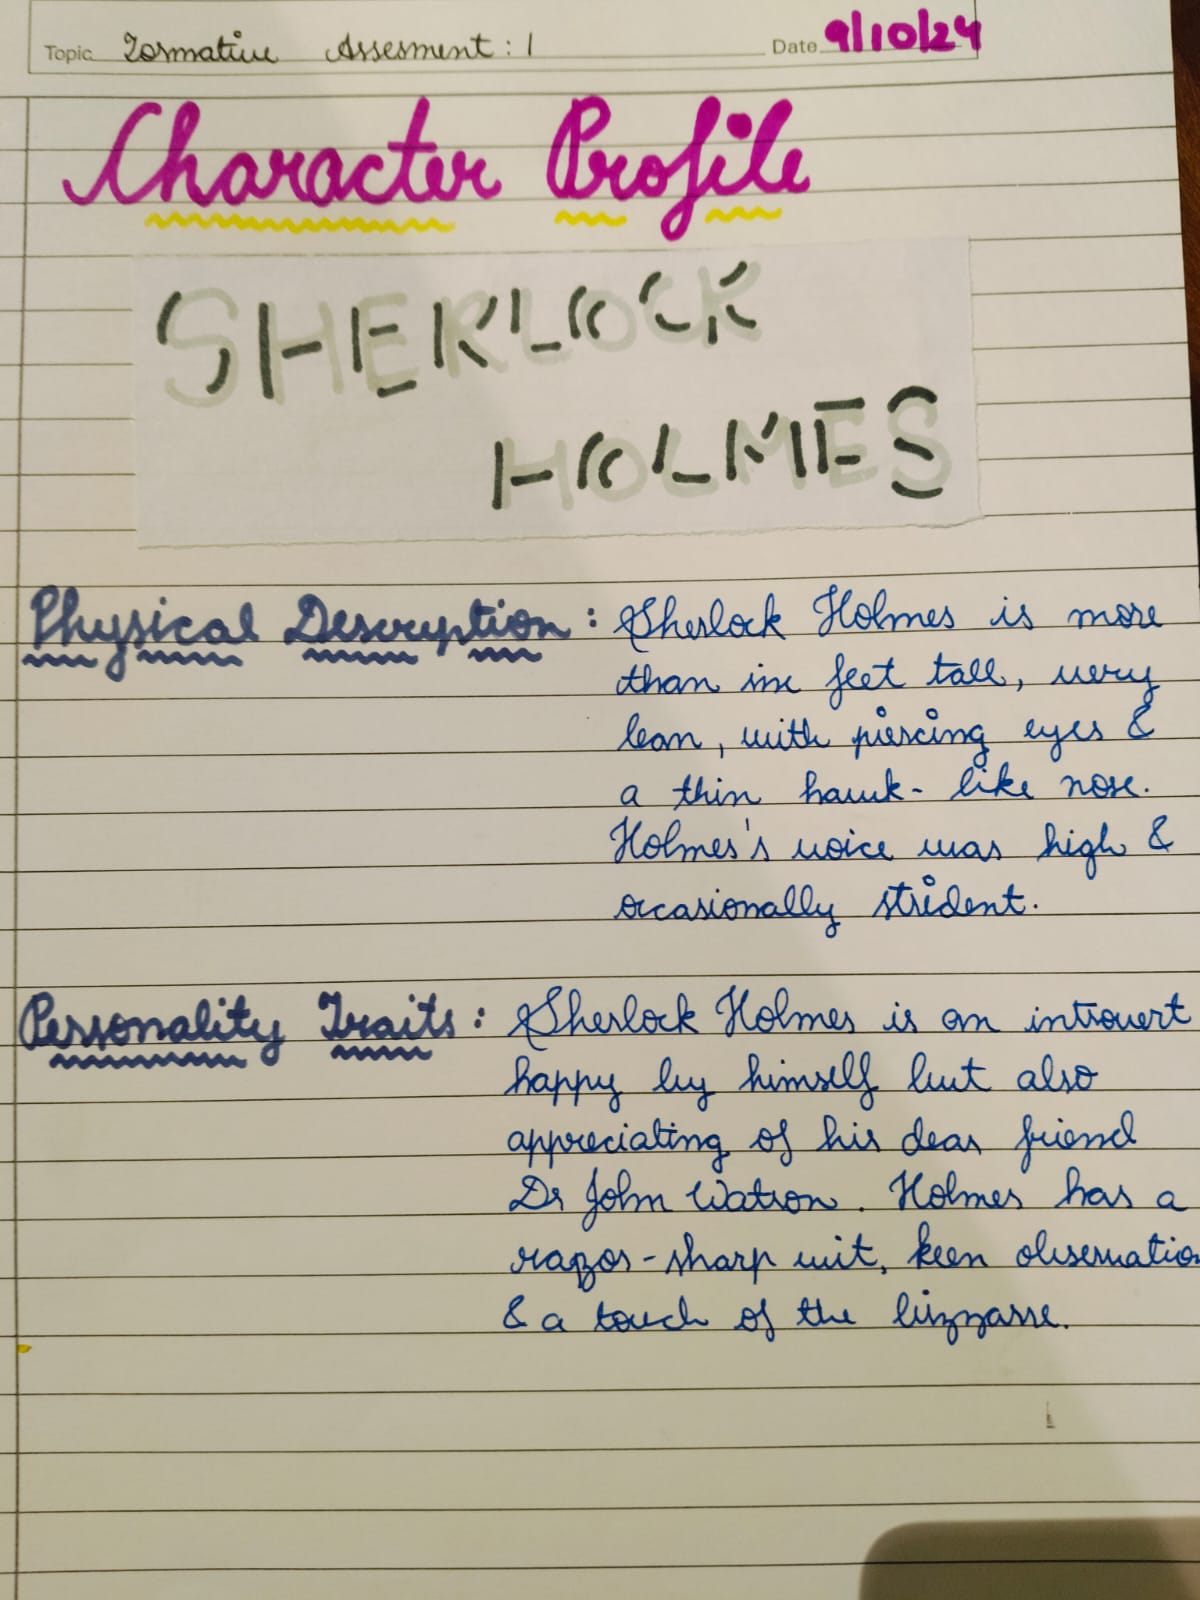 Topic Formative Assesment : 1 Date 9/10/24
Character Profile
SHERLOCK
HOLMES
Physical Descryption : Sherlock Holmes is more
than six feet tall, very
lean, with piercing eyes &
a thin hawk-like nose.
Holmes's voice was high &
occasionally strident.
Personality Traits : Sherlock Holmes is an introvert
happy by himself but also
appreciating of his dear friend
Dr John Watson. Holmes has a
razor-sharp wit, keen observation
& a touch of the bizzarre.